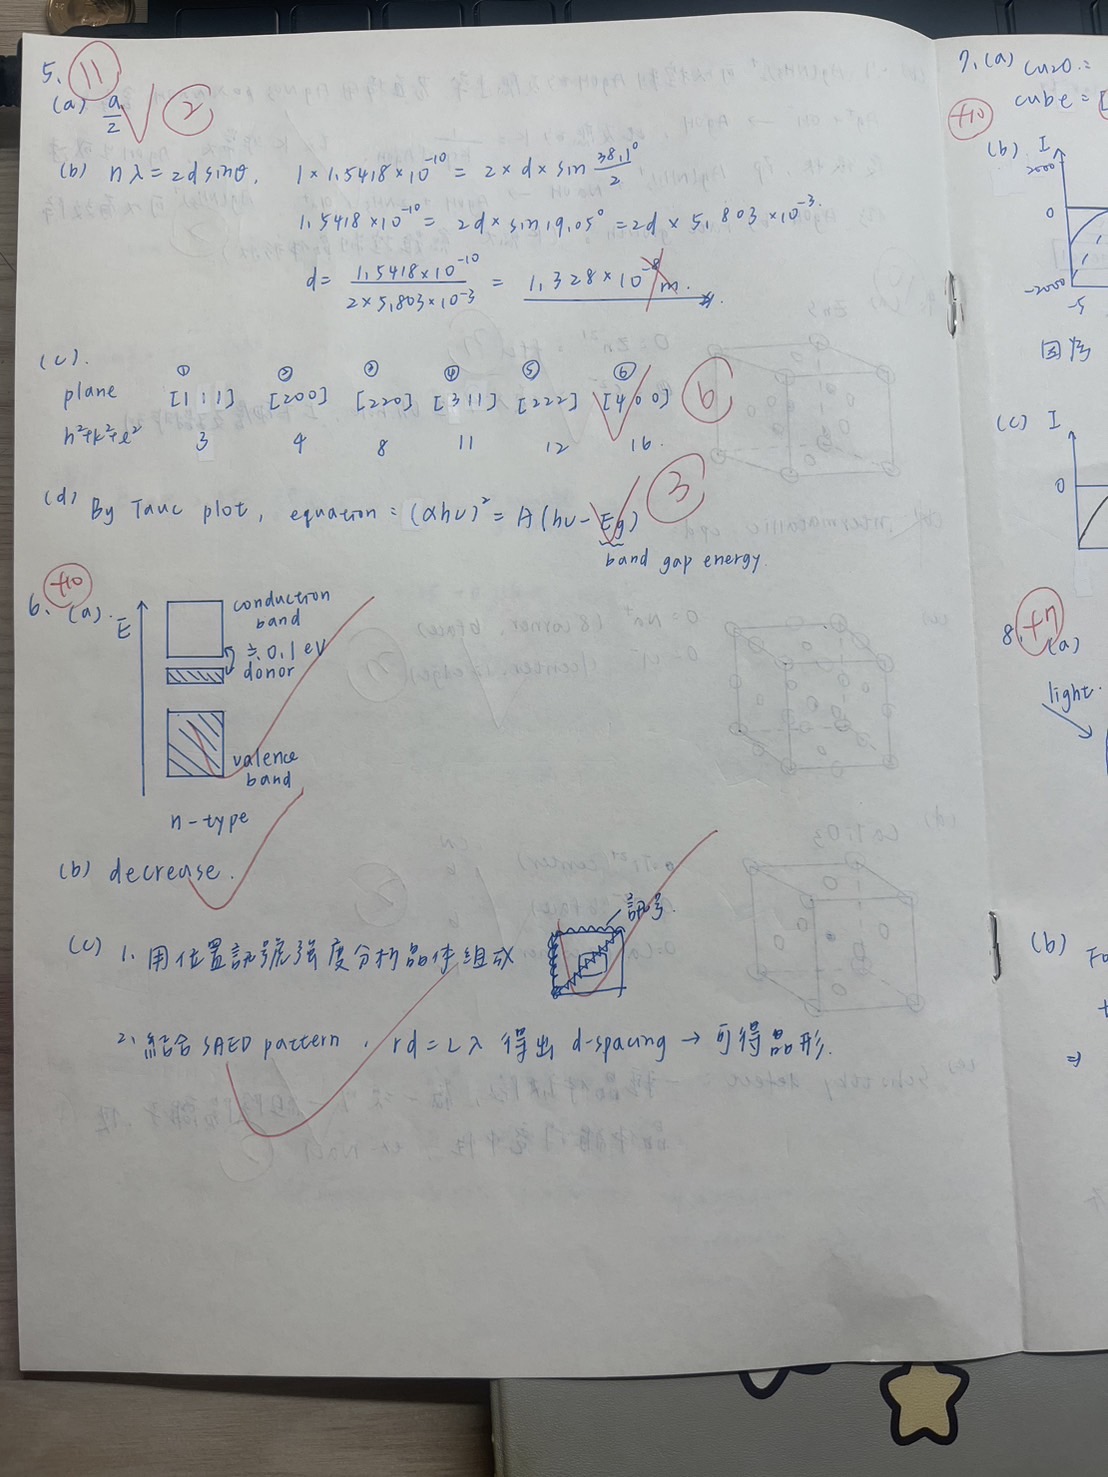 5. 11
(a) a/2 2
(b) nλ = 2d sinθ, 1 × 1.5418 × 10⁻¹⁰ = 2 × d × sin 38.1°/2
1.5418 × 10⁻¹⁰ = 2d × sin 19.05° = 2d × 5.803 × 10⁻³.
d = 1.5418 × 10⁻¹⁰ / 2 × 5.803 × 10⁻³ = 1.328 × 10⁻⁸ m.
(c).
① ② ③ ④ ⑤ ⑥
plane [111] [200] [220] [311] [222] [400] 6
h²+k²+l² 3 4 8 11 12 16.
(d) By Tauc plot, equation = (αhν)² = A(hν - Eg) 3
band gap energy.
6. +10
(a). E
conduction
band
≒ 0.1 eV
donor
valence
band
n-type
(b) decrease.
(c) 1. 用位置訊號強度分析晶体組成
訊号.
2. 結合 SAED pattern, rd = Lλ 得出 d-spacing → 可得晶形.
7. (a) Cu2O =
cube = [
+10
(b). I
2000
0
-2000
-5
(c) I
0
8. +7
(a)
light.
(b) Fo
⇒